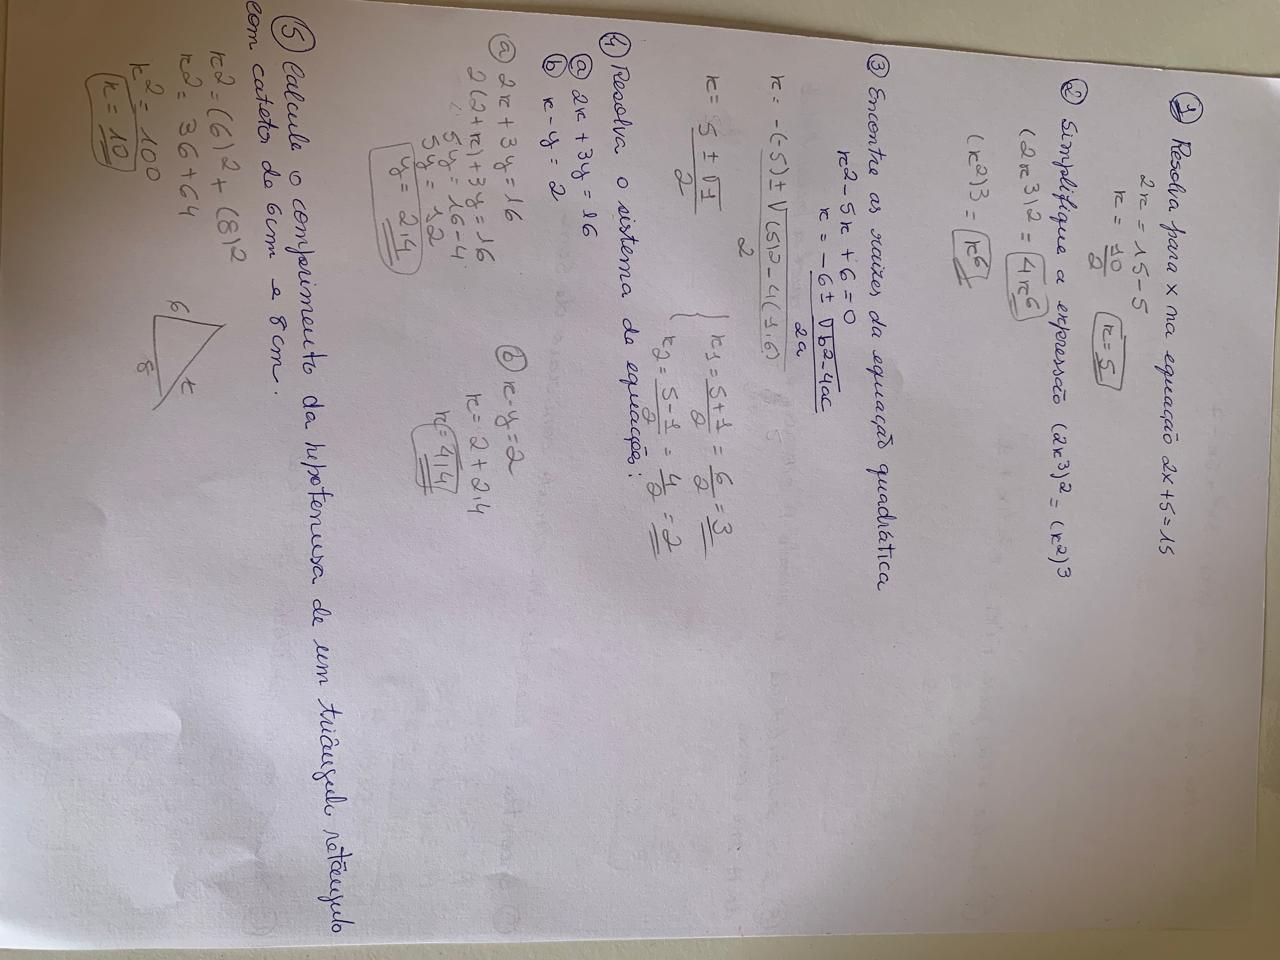 1 Resolva para x na equação 2x+5=15
2x = 15-5
x = 10/2 x=5
2 Simplifique a expressão (2x³)² = (x²)³
(2x³)² = 4x⁶
(x²)³ = x⁶
3 Encontre as raizes da equação quadrática
x²-5x+6=0
x = -6 ± √b²-4ac / 2a
x = -(-5) ± √(5)²-4(1.6) / 2
x = 5 ± √1 / 2
x1 = 5+1/2 = 6/2 = 3
x2 = 5-1/2 = 4/2 = 2
4 Resolva o sistema de equações:
a 2x+3y=16
b x-y=2
a 2x+3y=16
2(2+x)+3y=16
5y=16-4
5y=12
y=2,4
b x-y=2
x=2+2,4
x=4,4
5 Calcule o comprimento da hipotenusa de um triângulo retângulo
com catetos de 6cm e 8cm.
x²=(6)²+(8)²
x²=36+64
x²=100
x=10
6 x
8